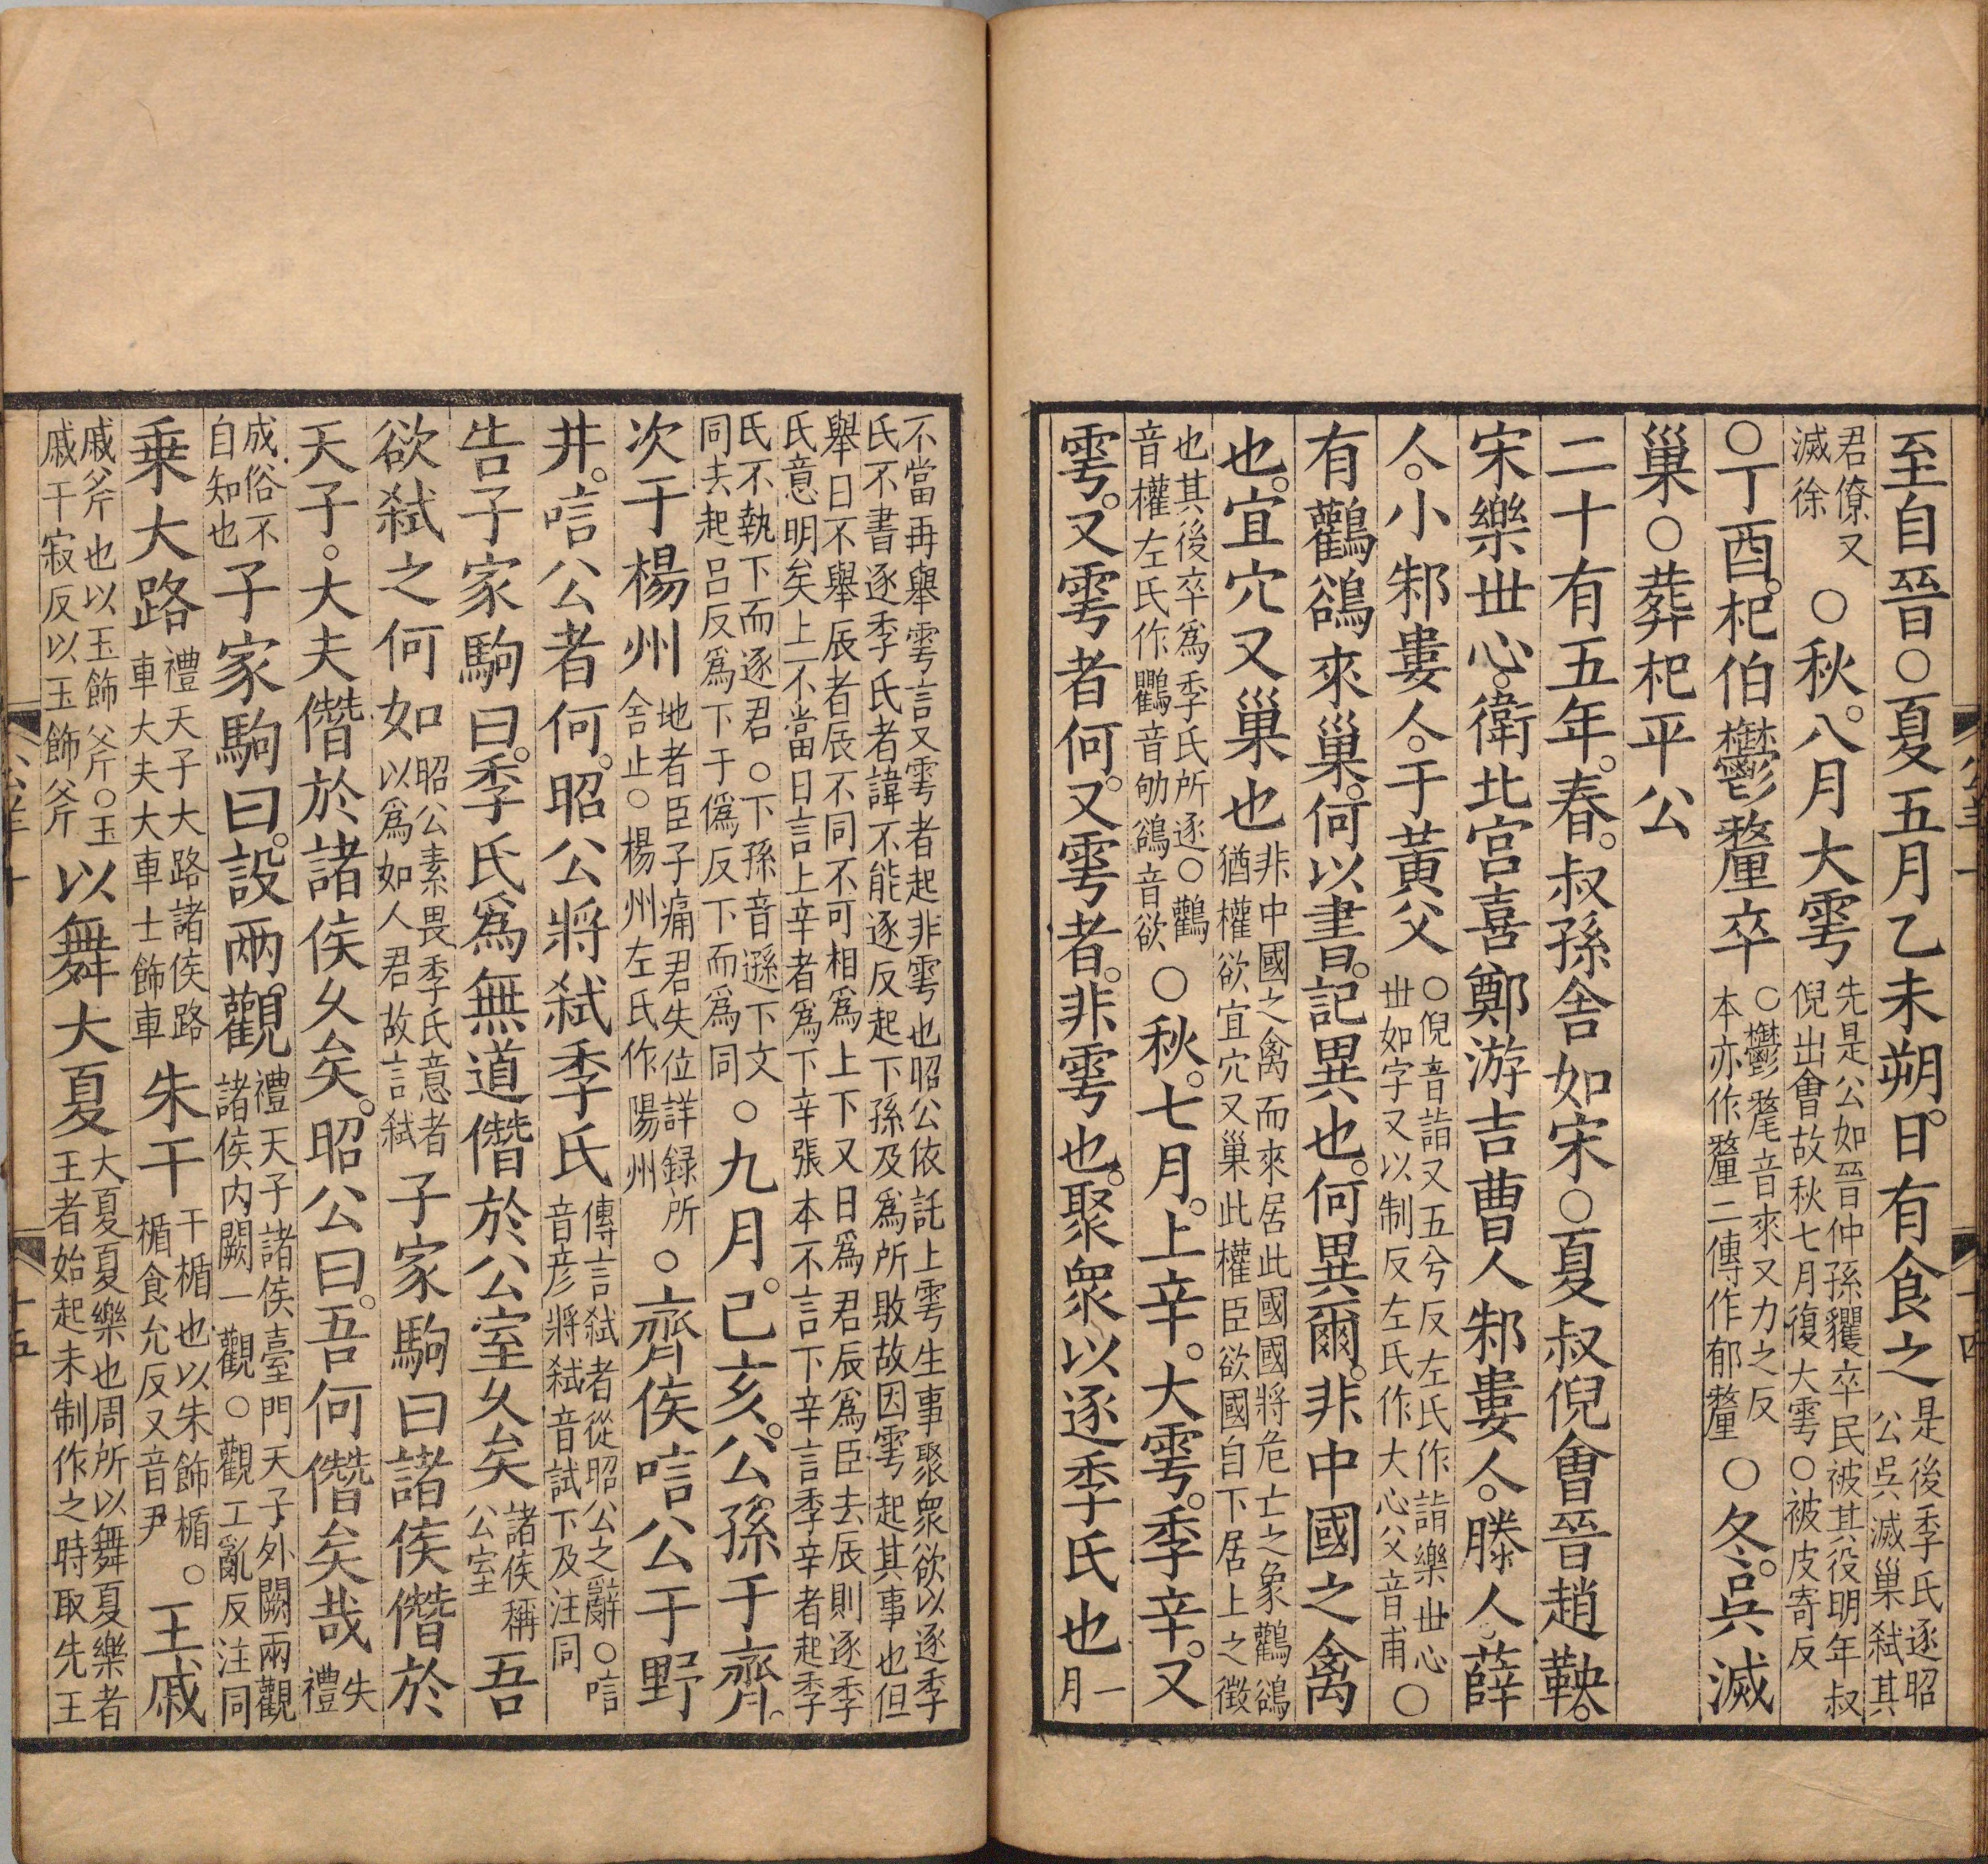 至自晉○夏五月乙未朔。日有食之是後季氏逐昭公吳滅巢弑其
君僚又滅徐○秋。八月大雩先是公如晉仲孫貜卒民被其役明年叔倪出會故秋七月復大雩○被皮寄反
○丁酉。杞伯鬱釐卒○鬱釐音來又力之反本亦作釐二傳作郁釐○冬。吳滅
巢○葬杞平公
二十有五年。春。叔孫舍如宋○夏叔倪會晉趙鞅。
宋樂世心。衛北宮喜鄭游吉曹人邾婁人。滕人薛
人。小邾婁人。于黃父○倪音詣又五兮反左氏作詣樂世心世如字又以制反左氏作大心父音甫○
有鸛鵒來巢。何以書。記異也。何異爾。非中國之禽
也。宜穴又巢也非中國之禽而來居此國國將危亡之象鸛鵒猶權欲宜穴又巢此權臣欲國自下居上之徵
也其後卒爲季氏所逐○鸛音權左氏作鸜音劬鵒音欲○秋。七月。上辛。大雩。季辛。又
雩。又雩者何。又雩者。非雩也。聚衆以逐季氏也一月
不當再舉雩言又雩者起非雩也昭公依託上雩生事聚衆欲以逐季氏不書逐季氏者諱不能逐反起下孫及爲所敗故因雩起其事也但
舉日不舉辰者辰不同不可相爲上下又日爲君辰爲臣去辰則逐季氏意明矣上不當日言上辛者爲下辛張本不言下辛言季辛者起季
氏不執下而逐君○下孫音遜下文同去起呂反爲下于僞反下而爲同○九月。己亥。公孫于齊。
次于楊州地者臣子痛君失位詳録所舍止○楊州左氏作陽州○齊侯唁公于野
井。唁公者何。昭公將弑季氏傳言弑者從昭公之辭○唁音彦將弑音試下及注同
告子家駒曰。季氏爲無道僭於公室久矣諸侯稱公室吾
欲弑之何如昭公素畏季氏意者以爲如人君故言弑子家駒曰諸侯僭於
天子。大夫僭於諸侯久矣。昭公曰。吾何僭矣哉失禮
成俗不自知也子家駒曰。設兩觀禮天子諸侯臺門天子外闕兩觀諸侯内闕一觀○觀工亂反注同
乗大路禮天子大路諸侯路車大夫大車士飾車朱干干楯也以朱飾楯○楯食允反又音尹玉戚
戚斧也以玉飾斧○玉戚干寂反以玉飾斧以舞大夏大夏夏樂也周所以舞夏樂者王者始起未制作之時取先王